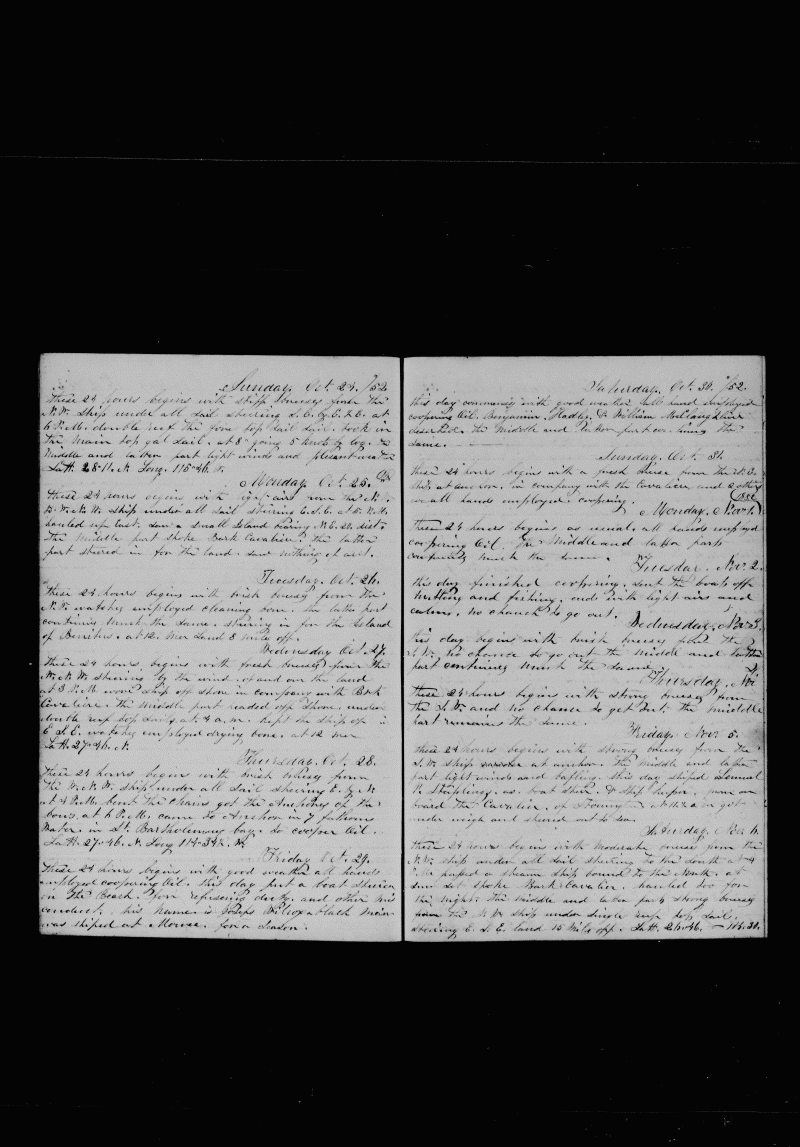 Sunday, Oct. 24. /52
These 24 hours begins with stiff breeses from the
N.W. ship under all sail steering S.E. by E. & E. at
6 P.M. double reef the fore top sail sail. took in
the main top gal sail. at 8 going 5 knots by log.
Middle and latter part light winds and plesant weather
Latt. 28-11. N. Long. 115-46.
Monday, Oct 25.
These 24 hours begins with light airs from the N.
N.W. ship under all sail steering E.S.E. at 5 P.M.
hauled up East. saw a small Island bearing N.E. dist.
The Middle part spoke Bark Cavalier. the latter
part steered in for the land. saw nothing of act.
Tuesday, Oct. 26.
These 24 hours begins with brisk breeses from the
N.W. watches employed cleaning bone. the latter part
continues much the same. steering in for the Island
of at 12. Mer Land 8 miles off.
Wednesday Oct. 27.
These 24 hours, begins with fresh breeses from the
N.N.W. steering by the wind of and on the land
at 3 P.M wore ship off shore in company with Bark
Cavalier. the Middle part headed off Shore. under
double reef top sails. at 4 a.m. kept the ship off
E.S.E. watches employed drying bone. at 12 mer
Latt. 27-46. N.
Thursday, Oct. 28.
These 24 hours begins with brisk breesy from
the N.N.W. ship under all sail steering E. by N.
at 4 P.M. bent the chains got the Anchors of the
bows. at 6 P.M. came to Anchor in 7 fathoms
Water. in St. Bartholemus bay. to cooper Oil.
Latt. 27-46. N. Long 114-34. W.
Friday Oct. 29.
These 24 hours begins with good weather all hands
employed coopering Oil. this day put a boat steerer
on the Beach. for refuseing duty. and other mis
conduct. his name is Wilcox a black man
was shiped at for a season.
Saturday, Oct. 30. /52.
this day commences with good weather all hand employed
coopering Oil. Benjamin. Hadley. & William McLaughlin
deserted. the middle and latter part continues the
same.
Sunday, Oct. 31.
These 24 hours begins with a fresh breese from the N.E.
ship at anchor. in company with the Cavalier and 2 others
all hands employed coopering.
Monday, Nov 1.
These 24 hours begins as usual. all hands employed
coopering Oil. The Middle and latter part
continues much the same.
Tuesday, Nov. 2.
this day finished coopering. sent the boats off
and fishing, ends with light airs and
calms. no chance to go out.
Wednesday, Nov 3.
this day begins with brisk breeses from the
S.W. no chance to go out the middle and latter
part continues much the same
Thursday, Nov 4
These 24 hours begins with strong breeses from
the S.W. and no chance to get out. the middle
part remains the same.
Friday, Nov. 5.
These 24 hours begin with strong breesy from the
S.W. ship at anchor. The middle and latter
part light winds and bafling. this day shiped Lemuel
as. boat steer. & ship keeper. from on
board the Cavalier, of Stonington at 11 a m got
under weigh and steered out to sea.
Saturday, Nov 6.
These 24 hours begin with Moderate breese from the
N.W. ship under all sail steering to the South at 4
P.M. passed a steam ship bound to the North. at
sun set spoke Bark Cavalier. hauled too for
the night. the middle and latter part strong breesy
from the N.W. ship under single reef top sail.
steering E.S.E. land 15 miles off. Latt. 26-46. - 114.31.